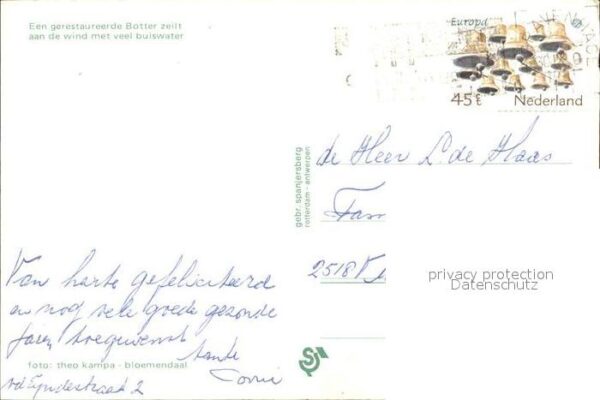 Een gerestaureerde Botter zeilt
aan de wind met veel buiswater
Europa
45 c
Nederland
gebr. spanjersberg
rotterdam - antwerpen
de Heer L. de Haas
Fam
2518 V
privacy protection
Datenschutz
Van harte gefeliciteerd
en nog vele goede gezonde
jaren toegewenst
tante
Corrie
foto: theo kampa - bloemendaal
v.d. Eyndestraat 2